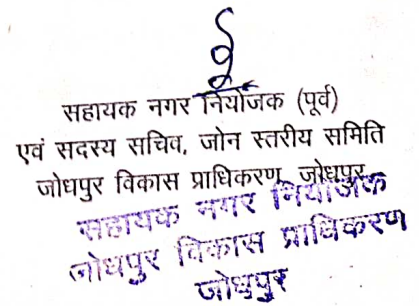 सहायक नगर नियोजक (पूर्व)
एवं सदस्य सचिव, जोन स्तरीय समिति
जोधपुर विकास प्राधिकरण, जोधपुर
सहायक नगर नियोजक
जोधपुर विकास प्राधिकरण
जोधपुर